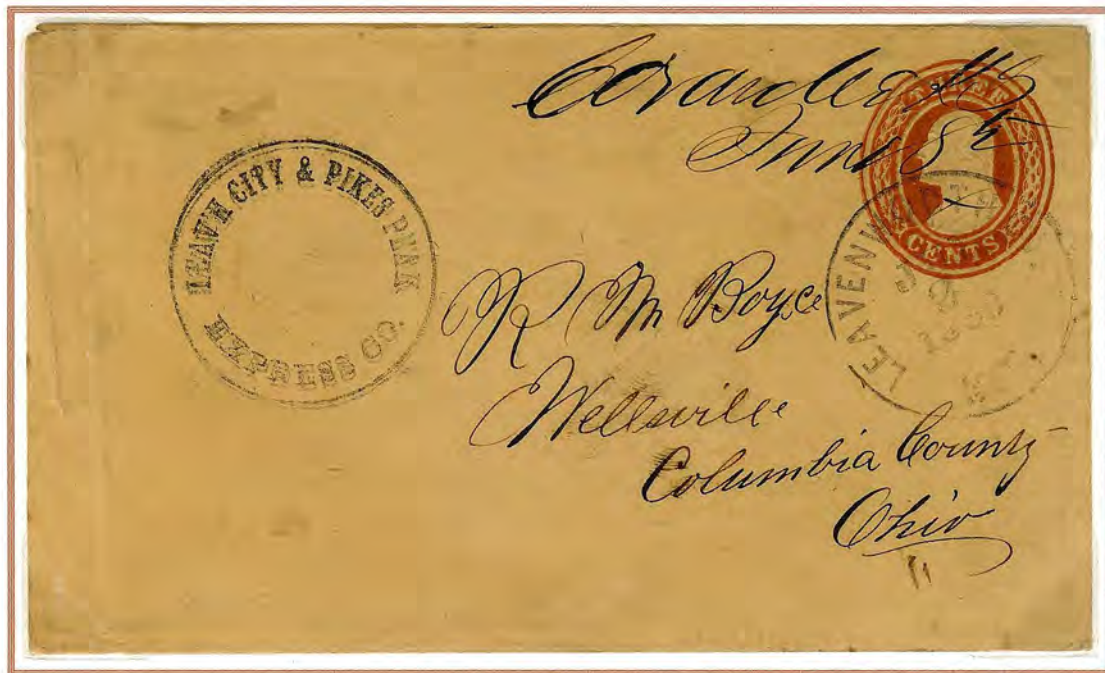 June 8th
THREE
CENTS
LEAV'H CITY & PIKES PEAK
EXPRESS CO.
R M Boyce
Wellsville
Columbia County
Ohio